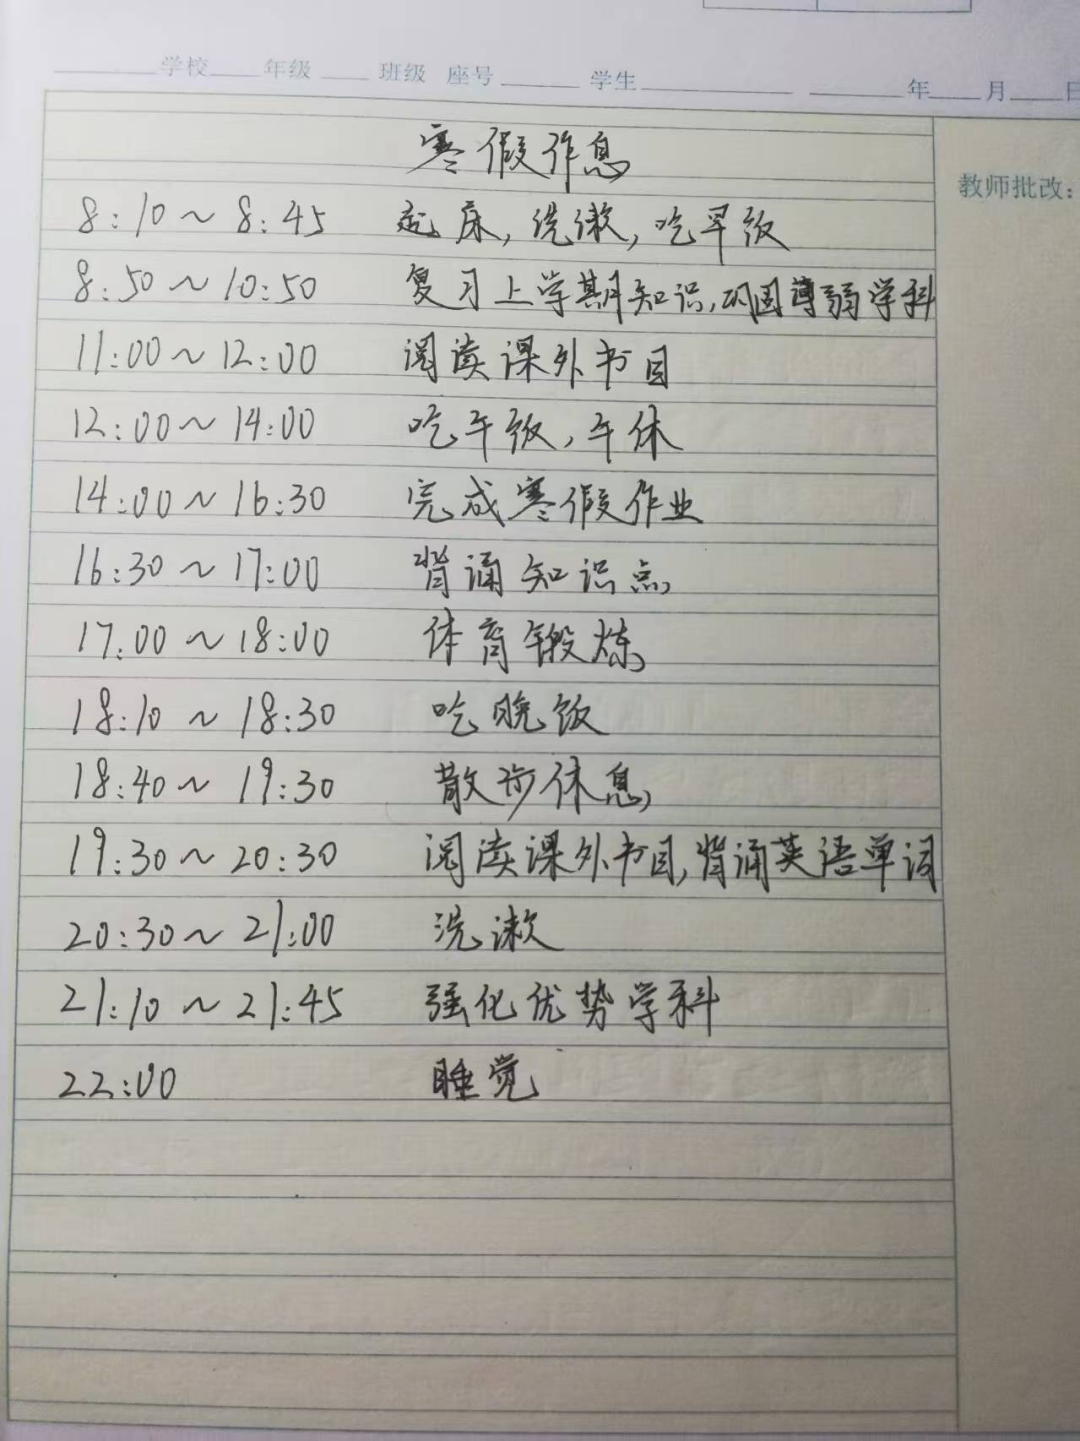 学校 年级 班级 座号 学生 年 月 日
寒假作息
教师批改:
8:10~8:45 起床,洗漱,吃早饭
8:50~10:50 复习上学期知识,巩固薄弱学科
11:00~12:00 阅读课外书目
12:00~14:00 吃午饭,午休
14:00~16:30 完成寒假作业
16:30~17:00 背诵知识点
17:00~18:00 体育锻炼
18:10~18:30 吃晚饭
18:40~19:30 散步休息
19:30~20:30 阅读课外书目,背诵英语单词
20:30~21:00 洗漱
21:10~21:45 强化优势学科
22:00 睡觉